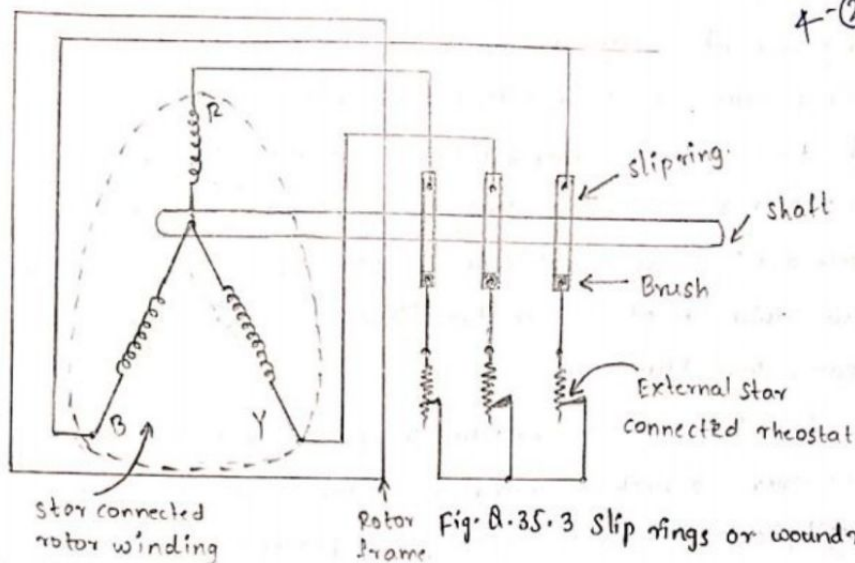 4-(2
R
slipring.
shaft
Brush
External star
connected rheostat
B
Y
star connected
rotor winding
Rotor
frame
Fig. Q.35.3 Slip rings or wound